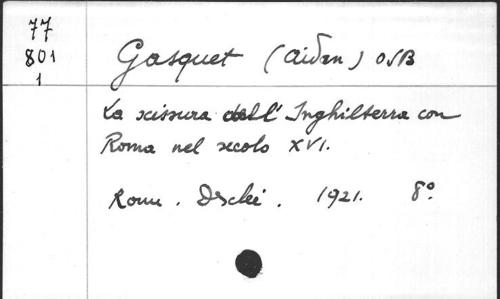 77
801
1
Gasquet (Aidan) OSB
La scissura dell' Inghilterra con
Roma nel secolo XVI.
Roma. Desclée. 1921. 8°.